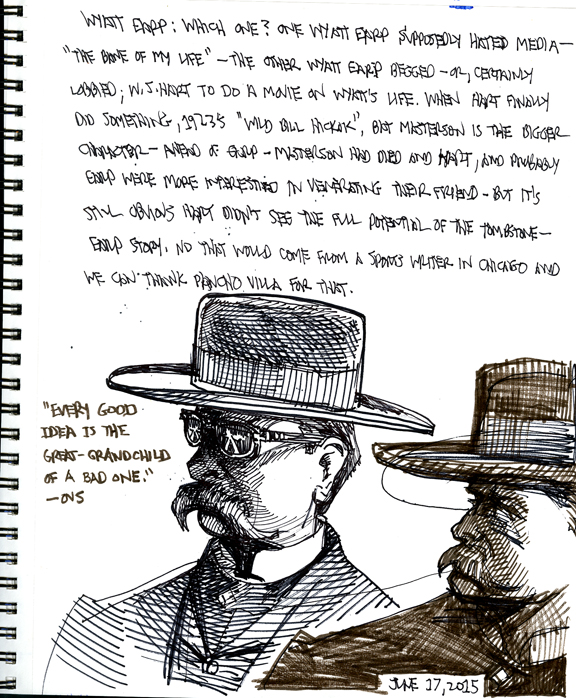 WYATT EARP: WHICH ONE? ONE WYATT EARP SUPPOSEDLY HATED MEDIA—
"THE BANE OF MY LIFE"—THE OTHER WYATT EARP BEGGED—OR, CERTAINLY
LOBBIED, W.S. HART TO DO A MOVIE ON WYATT'S LIFE. WHEN HART FINALLY
DID SOMETHING, 1923'S "WILD BILL HICKOK", BAT MASTERSON IS THE BIGGER
CHARACTER—AHEAD OF EARP—MASTERSON HAD DIED AND HART, AND PROBABLY
EARP WERE MORE INTERESTED IN VENERATING THEIR FRIEND—BUT IT'S
STILL OBVIOUS HART DIDN'T SEE THE FULL POTENTIAL OF THE TOMBSTONE—
EARP STORY. NO THAT WOULD COME FROM A SPORTS WRITER IN CHICAGO AND
WE CAN THANK PANCHO VILLA FOR THAT.
"EVERY GOOD
IDEA IS THE
GREAT-GRANDCHILD
OF A BAD ONE."
—OVS
JUNE 17, 2015